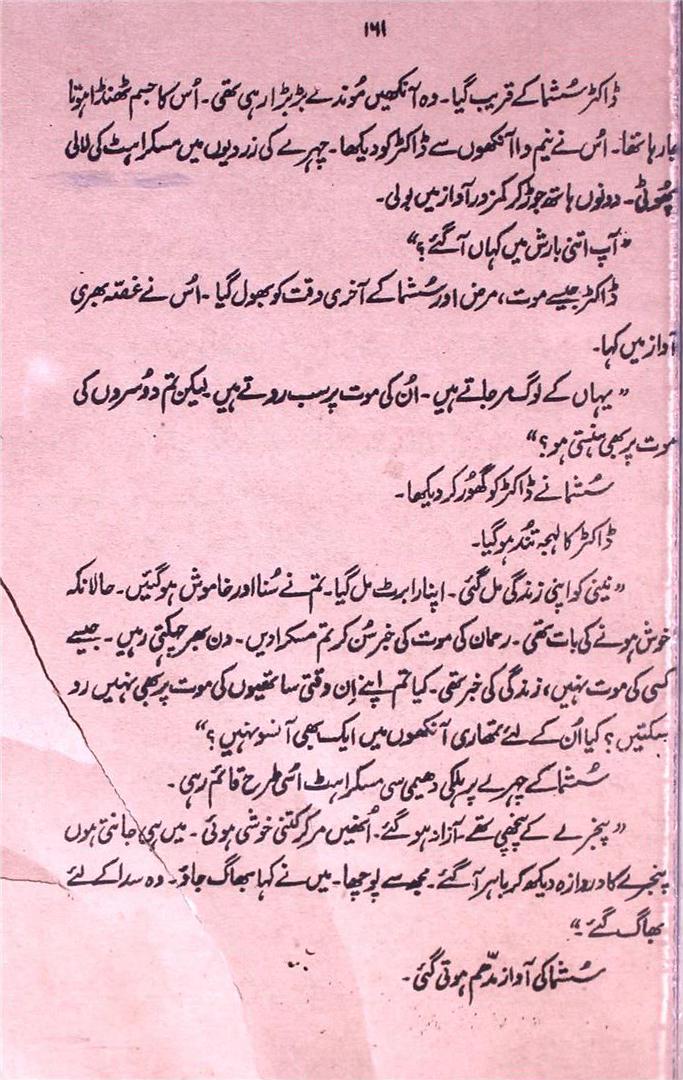 ۱۶۱
ڈاکٹر سُشما کے قریب گیا۔ وہ آنکھیں مُوندے بڑبڑا رہی تھی۔ اُس کا جسم ٹھنڈا ہوتا
جا رہا تھا۔ اُس نے نیم وا آنکھوں سے ڈاکٹر کو دیکھا۔ چہرے کی زردیوں میں مسکراہٹ کی لالی
پھُوٹی۔ دونوں ہاتھ جوڑ کر کمزور آواز میں بولی۔
"آپ اتنی بارش میں کہاں آگئے؟"
ڈاکٹر جیسے موت، مرض اور سُشما کے آخری وقت کو بھول گیا۔ اُس نے غصّہ بھری
آواز میں کہا۔
"یہاں کے لوگ مرجاتے ہیں۔ اُن کی موت پر سب روتے ہیں لیکن تم دوسروں کی
موت پر بھی ہنستی ہو؟"
سُشما نے ڈاکٹر کو گھُور کر دیکھا۔
ڈاکٹر کا لہجہ تُند ہوگیا۔
"نینی کو اپنی زندگی مل گئی۔ اپنا رابرٹ مل گیا۔ تم نے سُنا اور خاموش ہوگئیں۔ حالانکہ
خوش ہونے کی بات تھی۔ رحمان کی موت کی خبر سُن کر تم مسکرا دیں۔ دن بھر چہکتی رہیں۔ جیسے
کسی کی موت نہیں، زندگی کی خبر تھی۔ کیا تم اپنے اِن وقتی ساتھیوں کی موت پر بھی نہیں رو
سکتیں؟ کیا اُن کے لئے تمھاری آنکھوں میں ایک بھی آنسو نہیں؟"
سُشما کے چہرے پر ہلکی دھیمی سی مسکراہٹ اُسی طرح قائم رہی۔
"پنجرے کے پنچھی تھے۔ آزاد ہوگئے۔ اُنھیں مرکر کتنی خوشی ہوئی۔ میں ہی جانتی ہوں
پنجرے کا دروازہ دیکھ کر باہر آگئے۔ مجھ سے پوچھا۔ میں نے کہا بھاگ جاؤ۔ وہ سدا کے لئے
بھاگ گئے۔"
سُشما کی آواز مدّھم ہوتی گئی۔